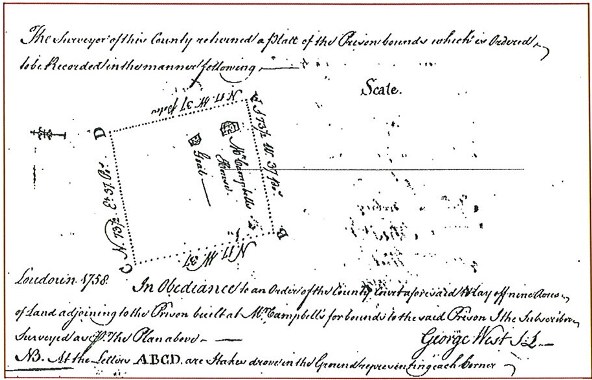 The Surveyor of this County returned a platt of the Prison bounds which is Ordered
to be Recorded in the manner following
Scale.
N 17 W 37 poles
A
S 73½ W 37 Po.
D
Goal
Mr. Campbells House
B
N 17 W 37
C
N 73½ E 37 Po.
Loudoun 1758. In Obediance to an Order of the County Court aforesaid to lay off nine Acres
of Land adjoining to the Prison built at Mr. Campbell's for bounds to the said Prison I the Subscriber
Surveyed as pr. The Plan above
George West S.L.
NB. At the Letters ABCD. are Stakes drove in the Ground representing each Corner